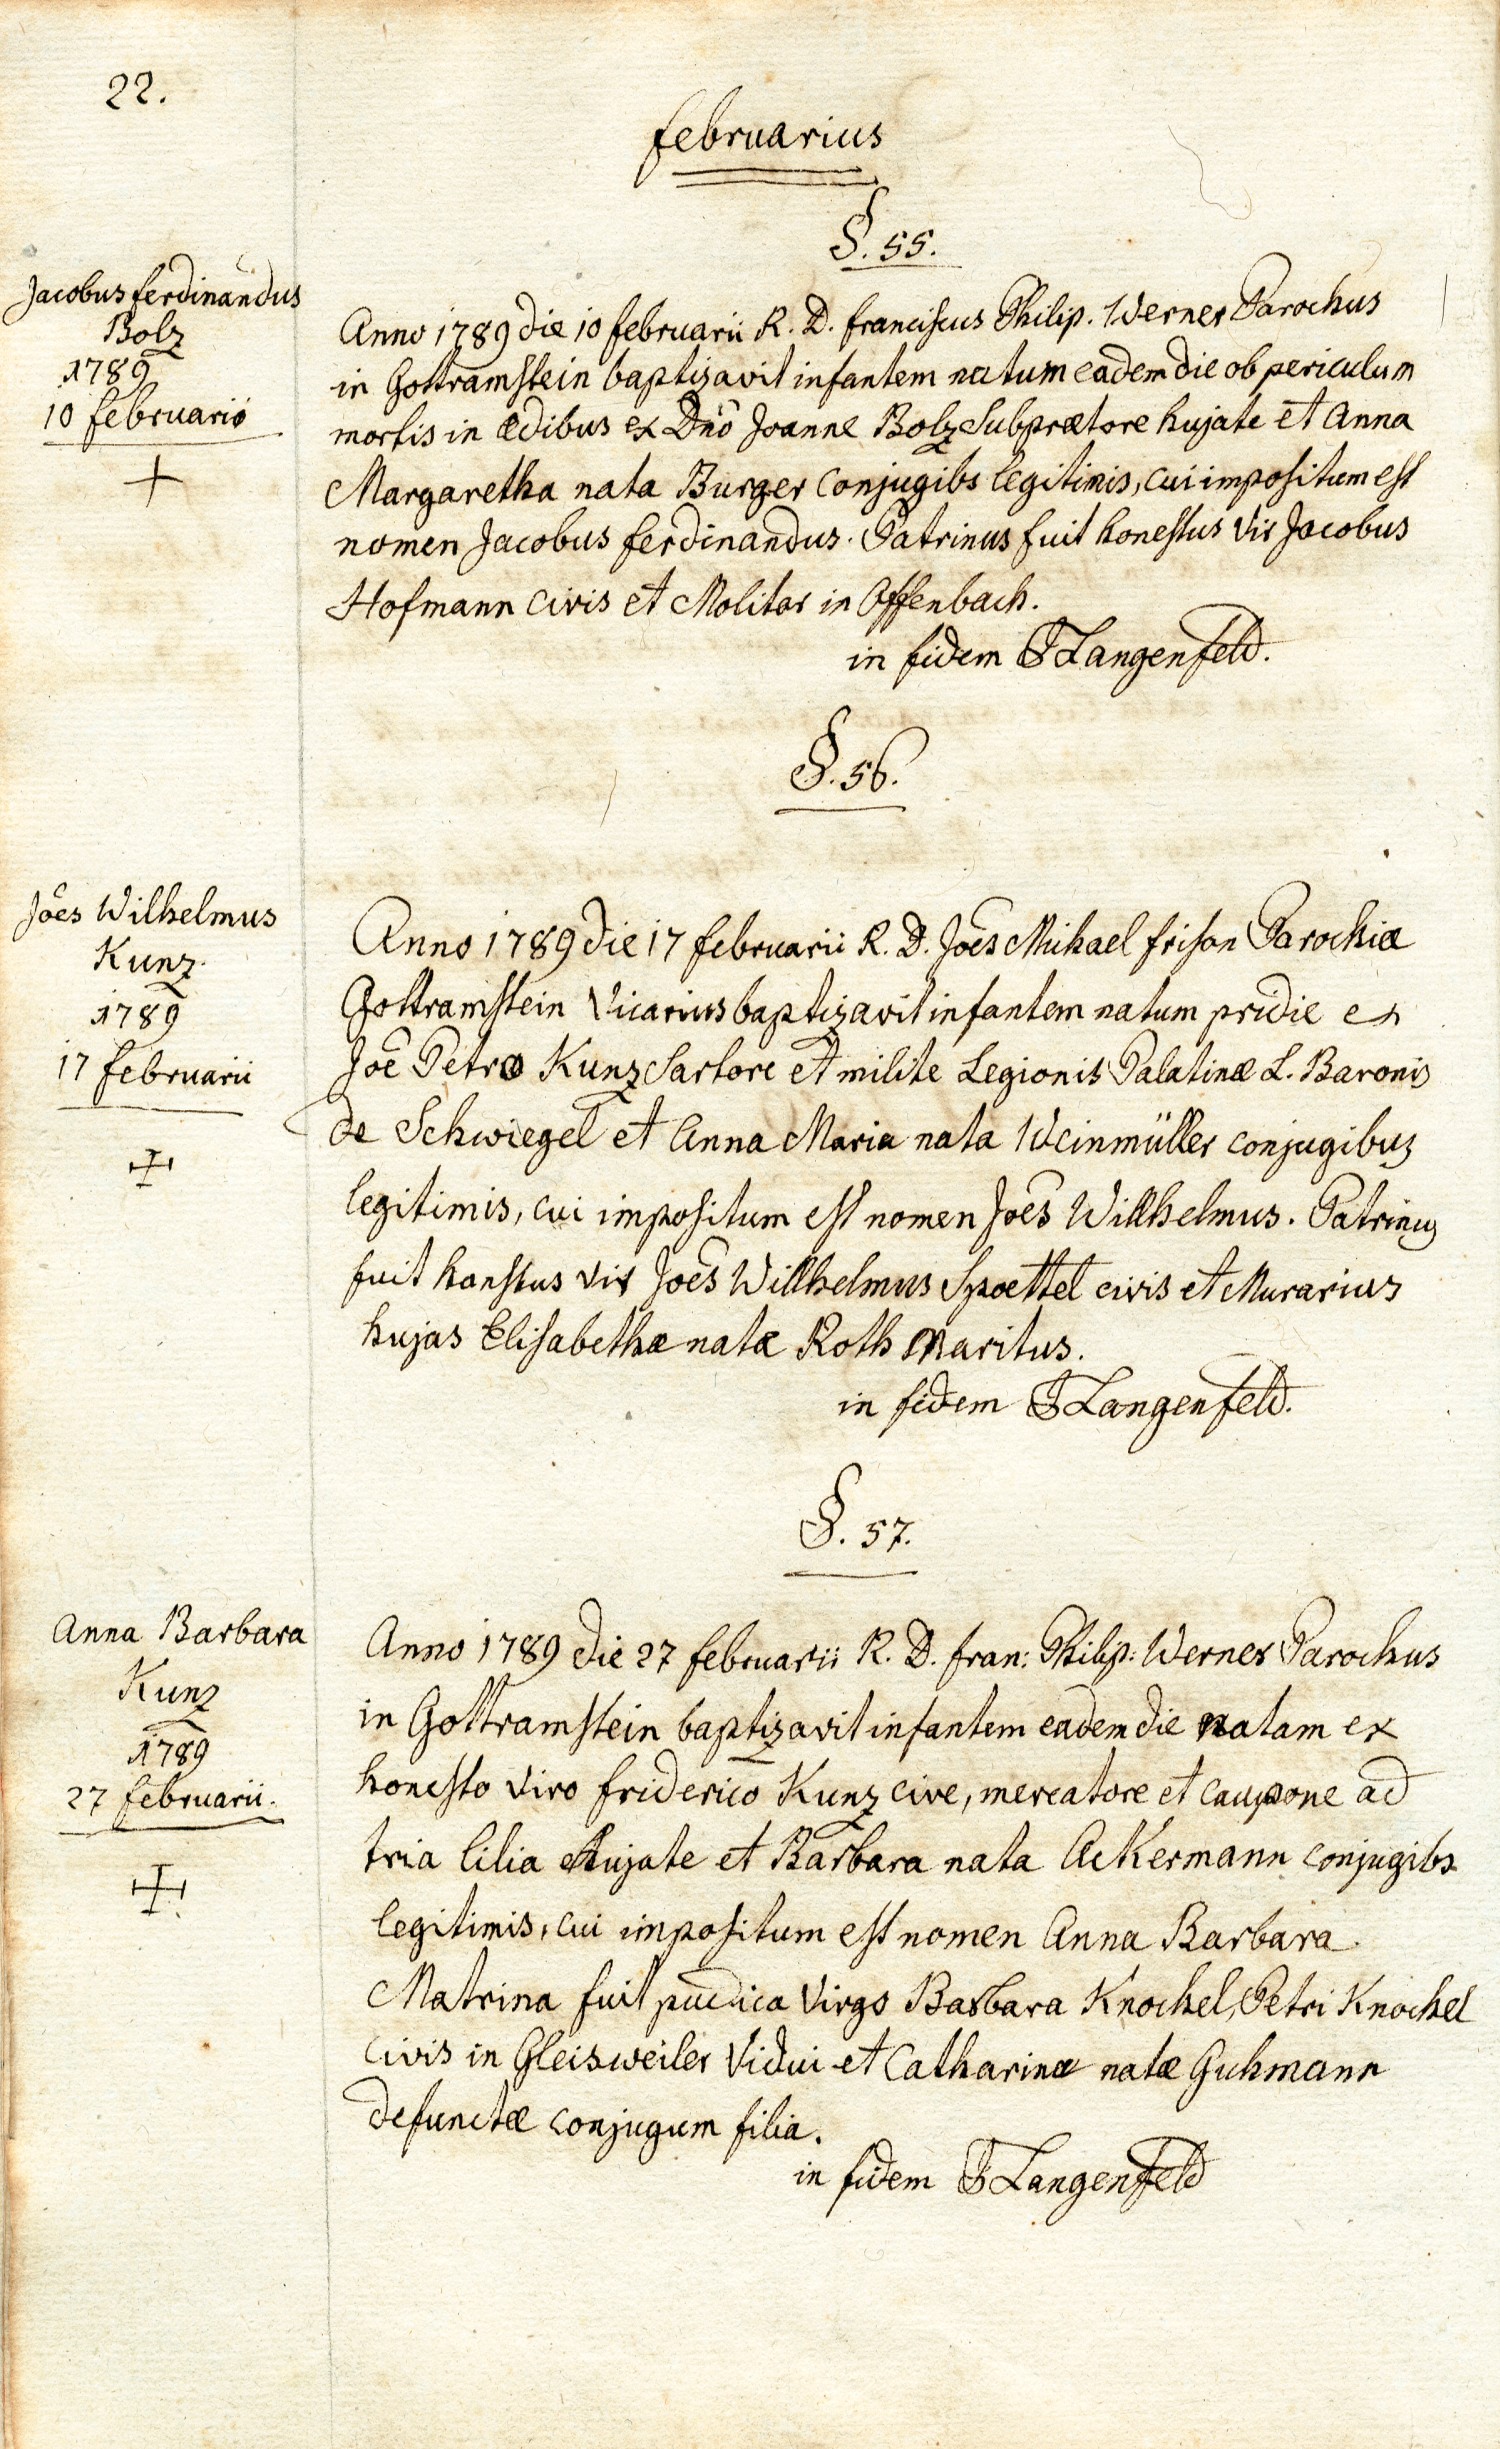 22.
februarius
§. 55.
Jacobus ferdinandus
Bolz
1789
10 februario
Anno 1789 die 10 februarii R. D. franciscus Philip. Werner Parochus
in Gottramstein baptizavit infantem natum eadem die ob periculum
mortis in ædibus ex Dnō Joanne Bolz Subprætore hujate et Anna
Margaretha nata Burger conjugibs legitimis, cui impositum est
nomen Jacobus ferdinandus. Patrinus fuit honestus vir Jacobus
Hofmann civis et Molitor in Offenbach.
in fidem Langenfeld.
§. 56.
Joēs Wilhelmus
Kunz
1789
17 februarii
Anno 1789 die 17 februarii R. D. Joēs Mihael frison Parochiæ
Gottramstein Vicarius baptizavit infantem natum pridie ex
Joē Petro Kunz Sartore et milite Legionis Palatinæ L. Baronis
de Schwiegel et Anna Maria nata Weinmüller conjugibus
legitimis, cui impositum est nomen Joēs Willhelmus. Patrinus
fuit honstus vir Joēs Willhelmus Spoettel civis et Murarius
hujas Elisabethæ natæ Roth Maritus.
in fidem Langenfeld.
§. 57.
Anna Barbara
Kunz
1789
27 februarii.
Anno 1789 die 27 februarii R. D. fran: Philip: Werner Parochus
in Gottramstein baptizavit infantem eadem die natam ex
honesto viro friderico Kunz cive, mercatore et caupone ad
tria lilia hujate et Barbara nata Ackermann conjugibs
legitimis, cui impositum est nomen Anna Barbara.
Matrina fuit pudica Virgo Barbara Knochel, Petri Knochel
civis in Gleisweiler Vidui et Catharinæ natæ Guhmann
defunctæ conjugum filia.
in fidem Langenfeld